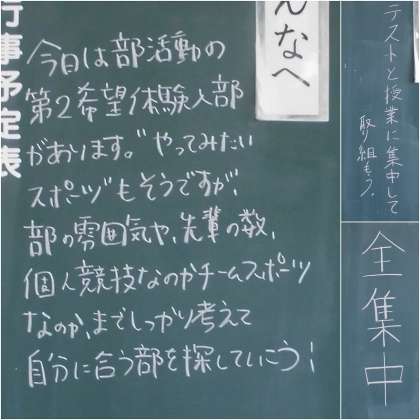 行事予定表
んなへ
今日は部活動の
第2希望体験入部
があります。"やってみたい
スポーツ"もそうですが、
部の雰囲気や、先輩の数、
個人競技なのかチームスポーツ
なのか、までしっかり考えて
自分に合う部を探していこう!
テストと授業に集中して
取り組もう。
全集中